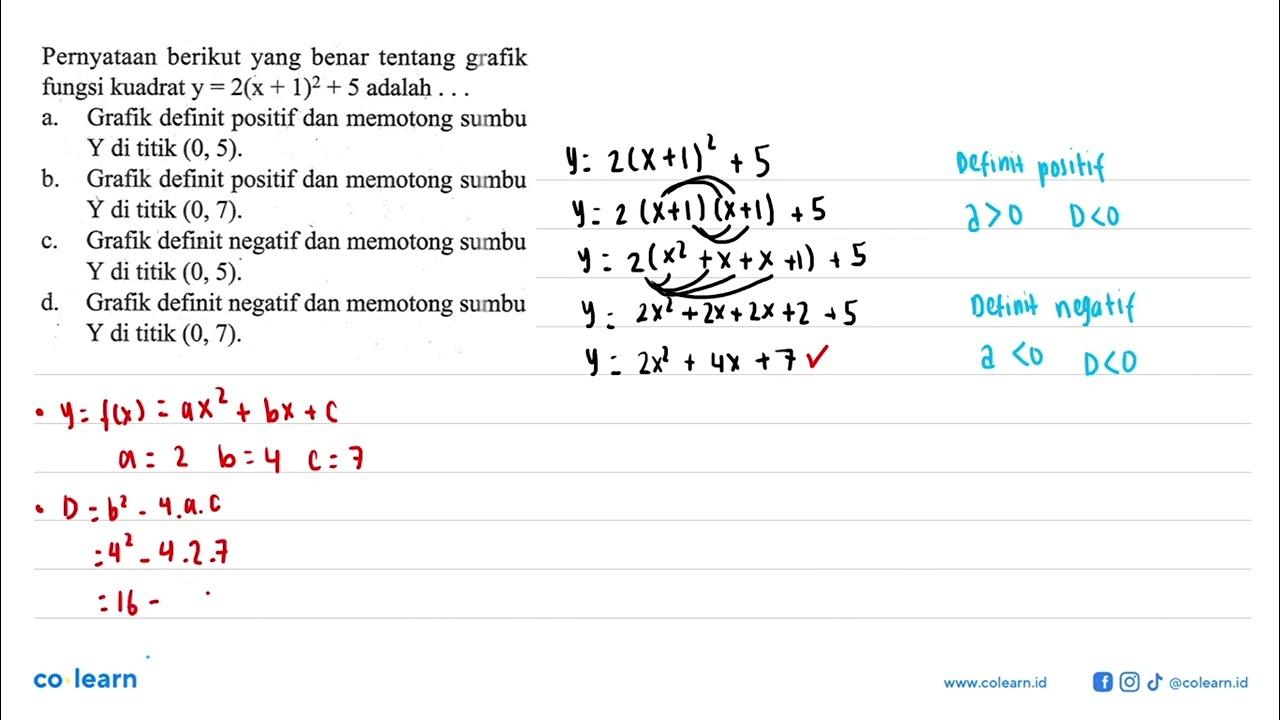 Pernyataan berikut yang benar tentang grafik
fungsi kuadrat y = 2(x + 1)² + 5 adalah . . .
a. Grafik definit positif dan memotong sumbu
Y di titik (0, 5).
b. Grafik definit positif dan memotong sumbu
Y di titik (0, 7).
c. Grafik definit negatif dan memotong sumbu
Y di titik (0, 5).
d. Grafik definit negatif dan memotong sumbu
Y di titik (0, 7).
y = 2(x+1)² + 5
y = 2 (x+1) (x+1) + 5
y = 2(x² + x + x + 1) + 5
y = 2x² + 2x + 2x + 2 + 5
y = 2x² + 4x + 7 ✓
Definit positif
a > 0 D < 0
Definit negatif
a < 0 D < 0
• y = f(x) = ax² + bx + c
a = 2 b = 4 c = 7
• D = b² - 4.a.c
= 4² - 4.2.7
= 16 -
co learn
www.colearn.id @colearn.id